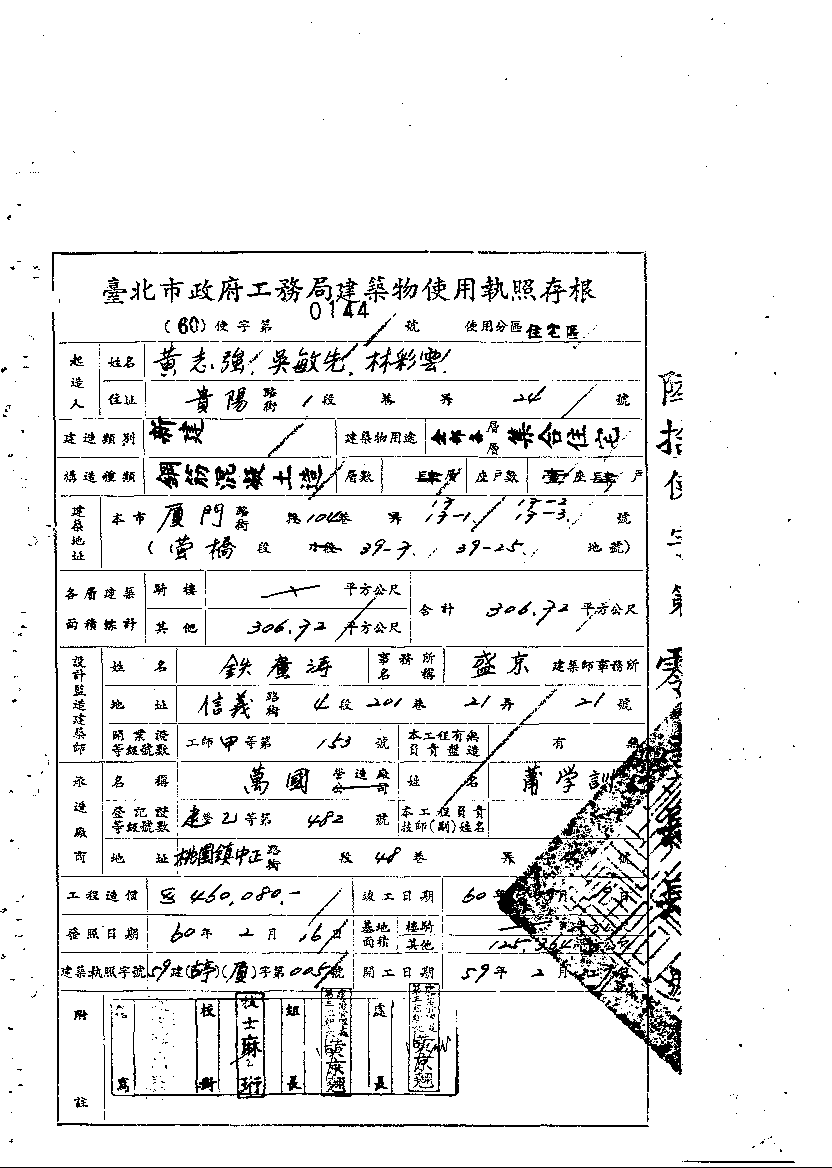 臺北市政府工務局建築物使用執照存根
(60)使字第 0144 號 使用分區 住宅區
起造人 姓名 黃志強、吳敏先、林彩雲
住址 貴陽 路街 1段 巷 弄 24 號
建造類別 新建 建築物用途 層層 集合住宅
構造種類 鋼筋混凝土造 層數 肆層 座戶數 壹座肆戶
建築地址 本市 厦門 路街 段 104巷 弄 17 17-1 17-2 17-3 號
(螢橋 段 小段 39-7 39-25 地號)
各層建築面積總計 騎樓 平方公尺
其他 306.72 平方公尺 合計 306.72 平方公尺
設計監造建築師 姓名 事務所名稱 盛京 建築師事務所
地址 信義 路街 4段 201巷 21弄 21號
開業證等級號數 工師甲等第 153 號 本工程有無負責監造 有 無
承造廠商 名稱 萬國 營造廠公司 姓名 學訓
登記證等級號數 建登乙等第 482 號 本工程負責技師(副)姓名
地址 桃園鎮中正 路街 段 48巷 弄 號
工程造價 460,080.- 竣工日期 60年 月 日
發照日期 60年 2月 16日 基地面積 騎樓 平方公尺
其他 125.364
建築執照字號 59建(古亭)(厦)字第005號 開工日期 59年 2月
附註
技士麻珩 組長 處長
陸拾使字第零